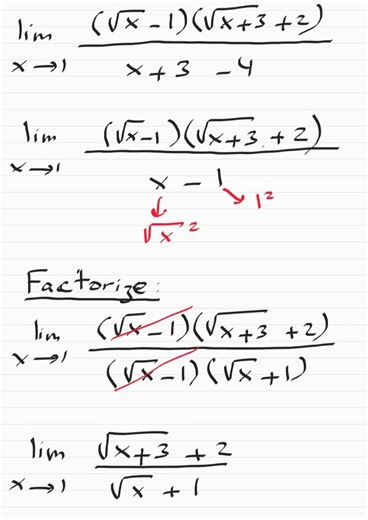 lim x→1 (√x - 1)(√(x+3) + 2) / (x + 3 - 4)
lim x→1 (√x - 1)(√(x+3) + 2) / (x - 1)
↓ ↘ 1²
√x ²
Factorize:
lim x→1 (√x - 1)(√(x+3) + 2) / (√x - 1)(√x + 1)
lim x→1 (√(x+3) + 2) / (√x + 1)